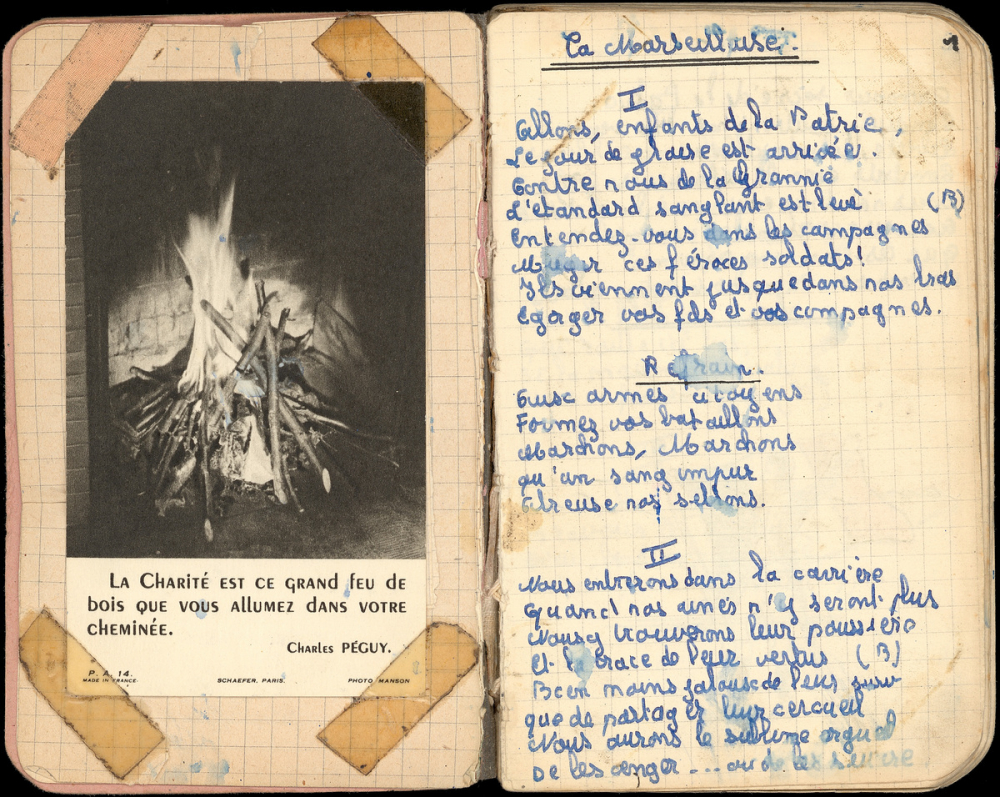 La Charité est ce grand feu de
bois que vous allumez dans votre
cheminée.
Charles PÉGUY.
P. A. 14.
MADE IN FRANCE
SCHAEFER, PARIS.
PHOTO MANSON
1
La Marseillaise.
I
Allons, enfants de la Patrie,
Le jour de gloise est arrivée.
Contre nous de la tyrannie
L'étandard sanglant est levé (B)
Entendez-vous dans les campagnes
Mugir ces féroces soldats!
Ils viennent jusque dans nos bras
Egorger vos fils et vos compagnes.
Refrain.
armes citoyens
Formez vos bataillons
Marchons, Marchons
qu'un sang impur
Abreuse nos sellons.
II
Nous entrerons dans la carrière
Quand nos ainés n'y seront plus
Nous y trouverons leur poussière
Et la trace de leur vertus (B)
Bien moins jalouse de leur
que de partager leur cercueil
Nous aurons le sublime orgueil
De les venger ... ou de les suivre